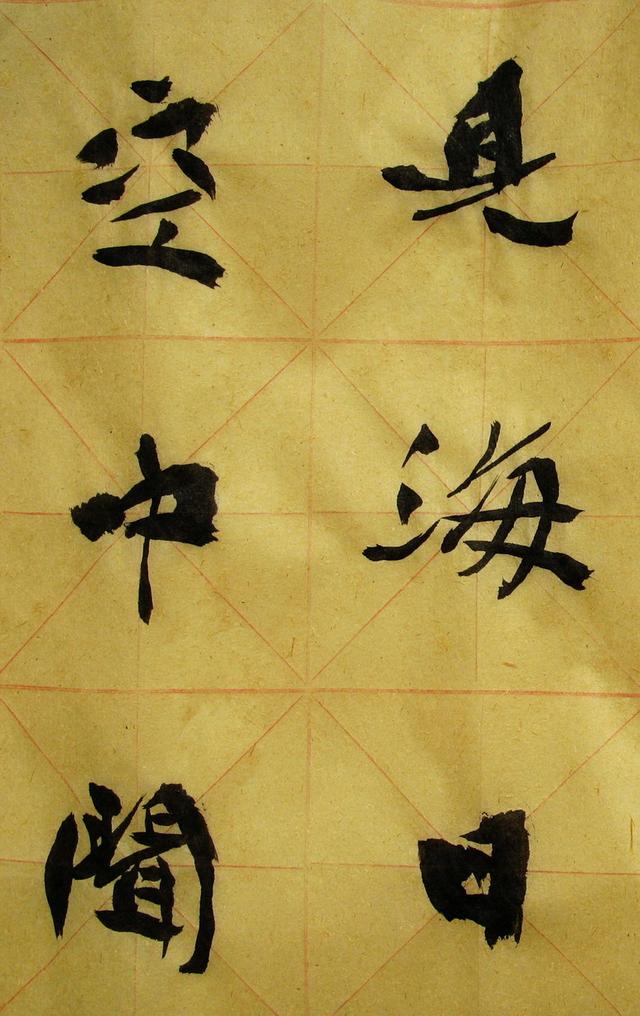 見海日
空中聞